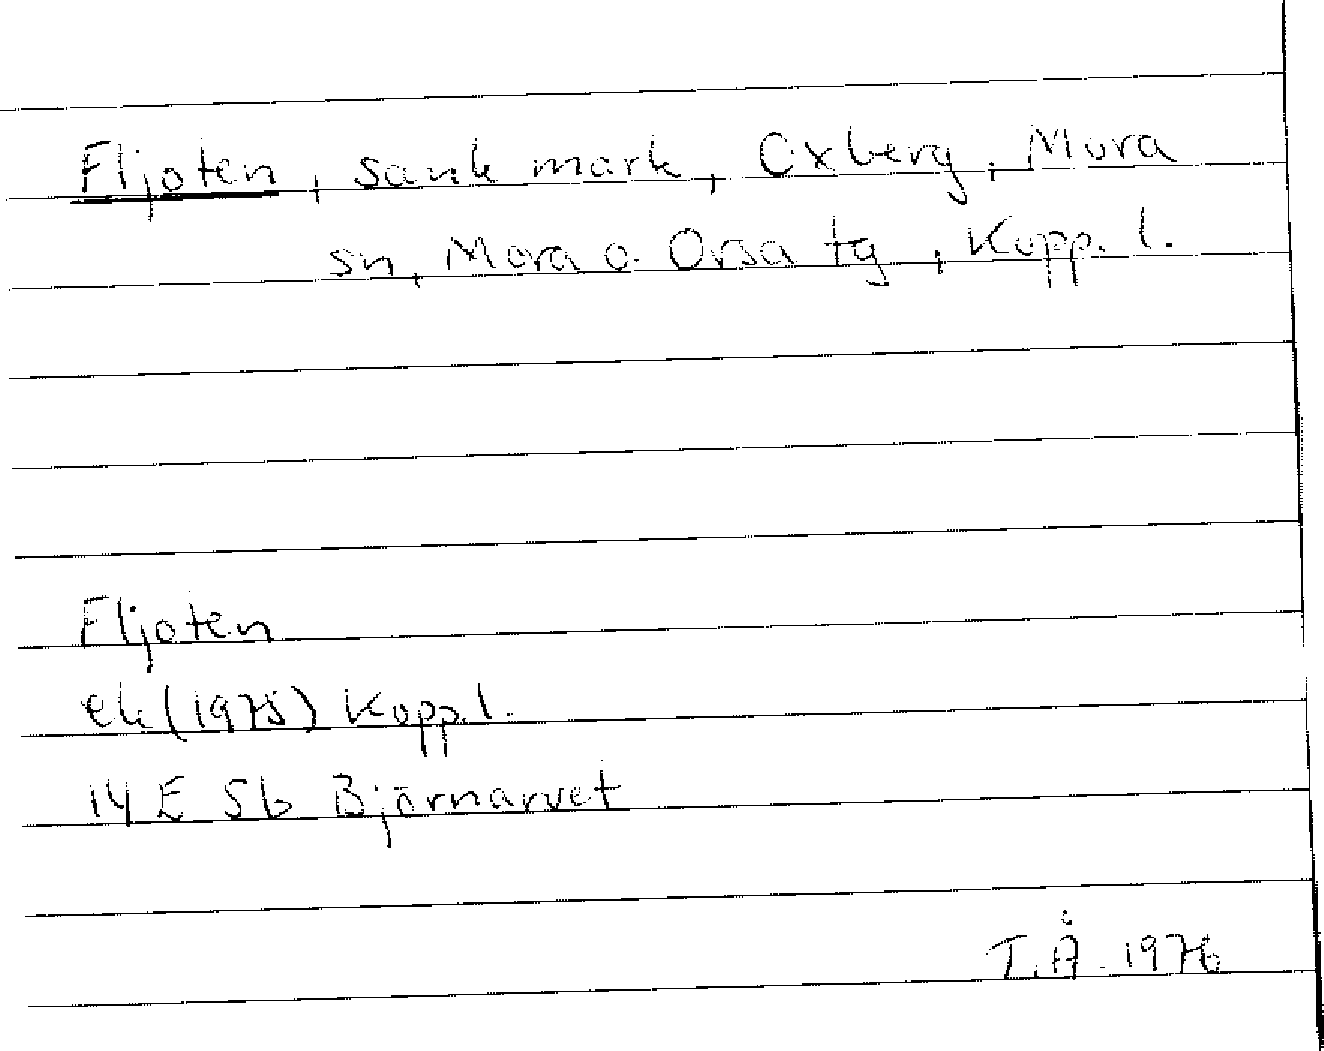 Fljoten, sank mark, Oxberg, Mora
sn, Mora o. Orsa tg, Kopp. l.
Fljoten
ek (1975) Kopp.l.
14 E 5b Björnarvet
T.Å. 1976